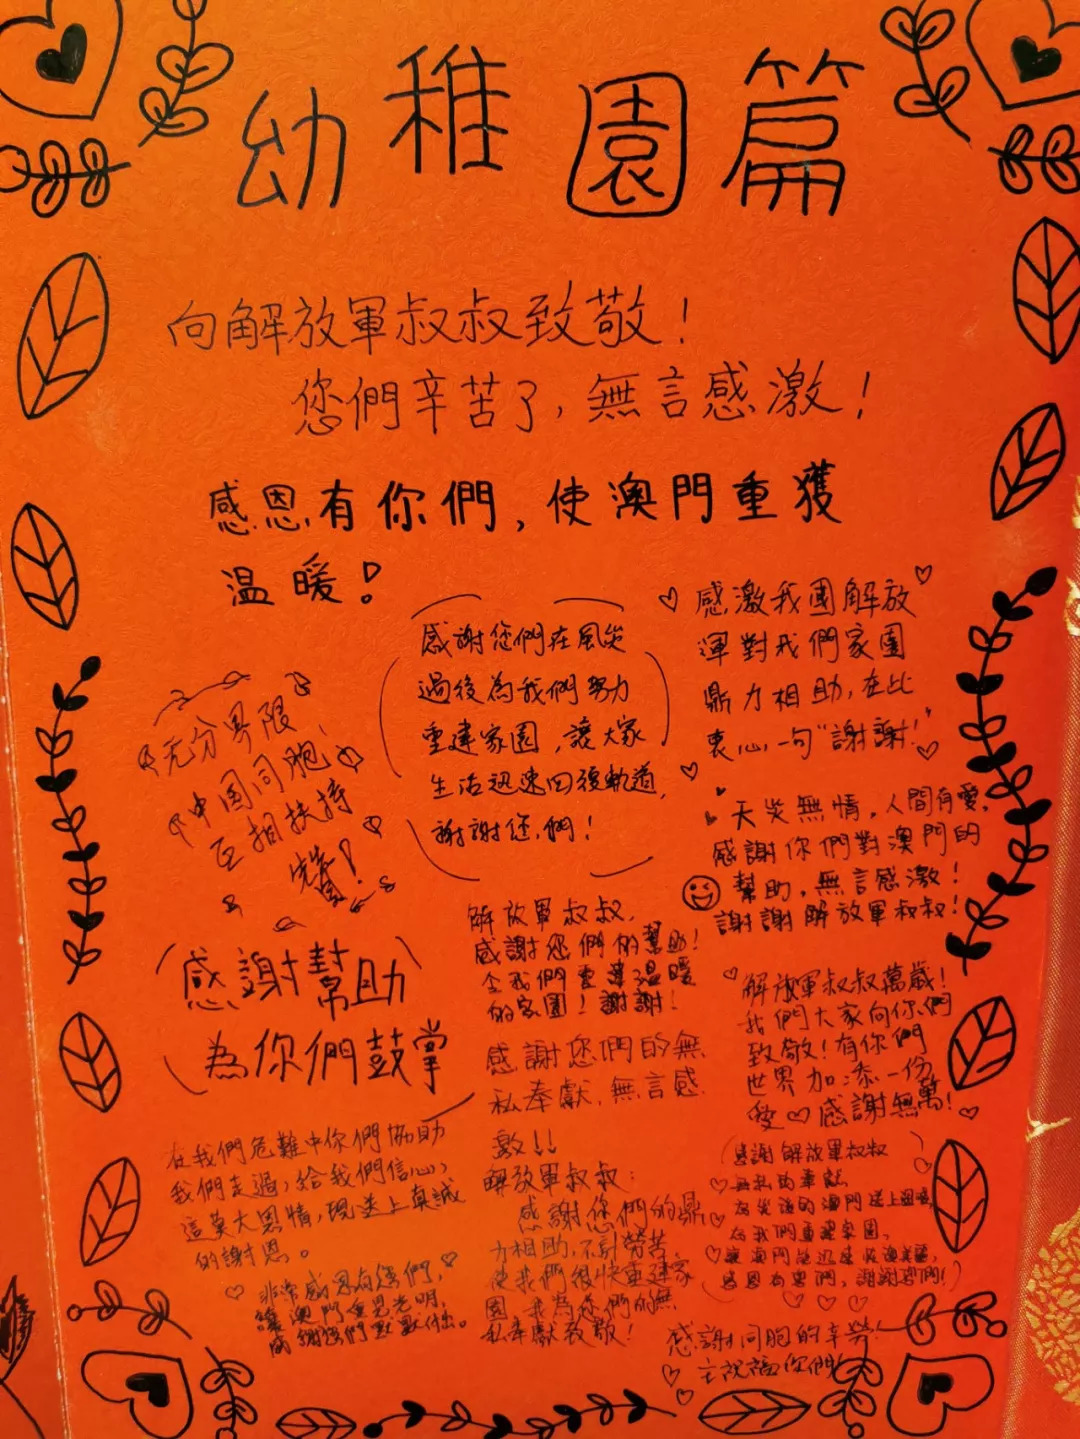 幼稚園篇
向解放軍叔叔致敬!
您們辛苦了,無言感激!
感恩有你們,使澳門重獲
温暖!
感謝您們在風災
過後為我們努力
重建家園,讓大家
生活迅速回復軌道,
謝謝您們!
感激我國解放
渾對我們家園
鼎力相助,在此
衷心一句"謝謝!"
无分界限,
中国同胞
互相扶持
天災無情,人間有愛,
感謝你們對澳門的
幫助,無言感激!
謝謝解放軍叔叔!
解放軍叔叔,
感謝您們的幫助!
令我們重建温暖
的家園!謝謝!
感謝幫助
為你們鼓掌
解放軍叔叔萬歲!
我們大家向你們
致敬!有你們
世界加添一份
愛♡感謝無萬!
感謝您們的無
私奉獻,無言感
激!!
在我們危難中你們協助
我們走過,給我們信心,
這莫大恩情,現送上真誠
的謝恩。
解放軍叔叔:
感謝您們的鼎
力相助,不計勞苦
使我們很快重建家
園,我為您們的無
私奉獻致敬!
感謝解放軍叔叔
無私的奉獻
為災後的澳門送上温暖,
為我們重建家園,
感恩有您們,謝謝您們!
非常感恩有您們,
讓澳門重見光明,
感謝您們點點付出。
感謝同胞的辛勞!
主祝福你們!